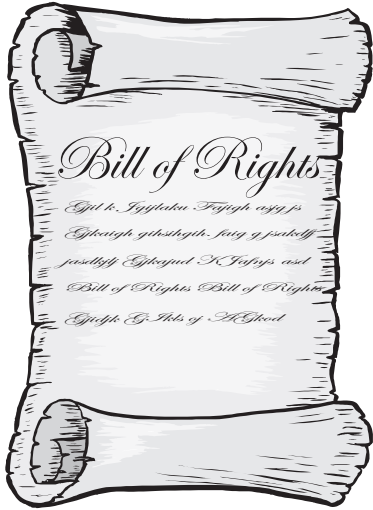 Bill of Rights
Gjil k Jgijlaku Fajigh asjg js
Gjkaigh gihsihgih faig g jsakdjf
jasdlkjlj Gjkajud KJafsjs asd
Bill of Rights Bill of Rights
Gjidjk GJkls oj AGkod